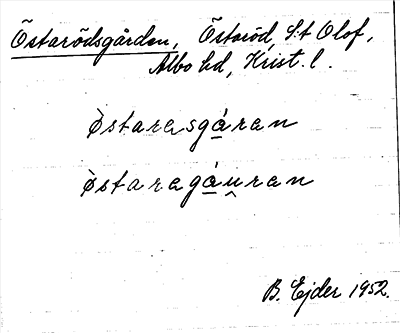 Östarödsgården, Östaröd, S:t Olof,
Albo hd, Krist. l.
Östaresgáran
Östaragáuran
B. Ejder 1952.